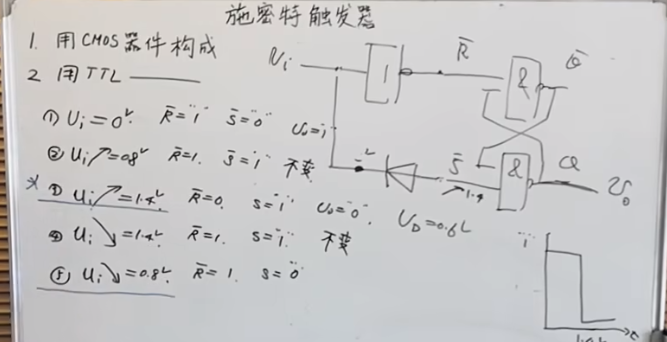 施密特触发器
1. 用CMOS器件构成
2 用TTL
① Ui=0V. R̄="1" S̄="0" Uo=1
② Ui↗=0.8V R̄=1. S̄="1" 不变
※ ③ Ui↗=1.4V. R̄=0. S="1" Uo="0".
④ Ui↘=1.4V. R̄=1. S="1". 不变
⑤ Ui↘=0.8V. R̄=1. S="0"
Ui
1
R̄
&
Q̄
S̄
1.4
&
Q
Uo
UD=0.6V
"1"